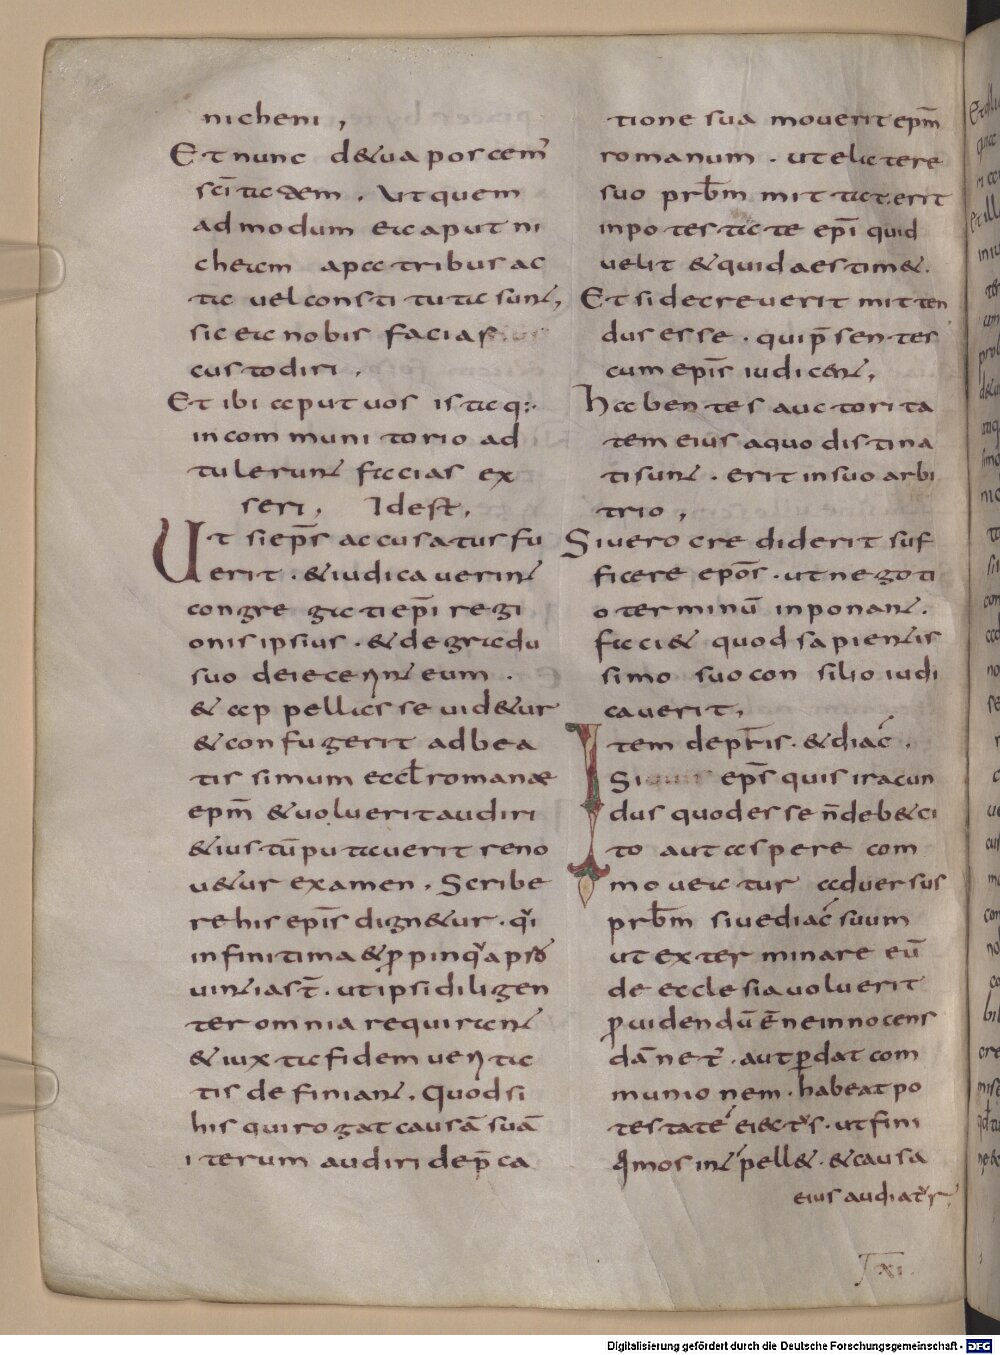 nicheni,
Et nunc de&ua poscem̃
sc̄itadem. Ut quem
admodum ea caput ni
cheam apa tribus ac
ta uel constitutasunt,
sic ea nobis facias
custodiri,
Et ibi aput uos ista q;
in communitorio ad
tulerunt facias ex
seri, Idest,
Ut si ep̄s accusatus fu
erit. & iudicauerint
congregati ep̄i regi
onis ipsius. & degradu
suo deiecerint eum.
& appellasse uid&ur
& confugerit ad bea
tissimum eccl̄ romanae
ep̄m & uoluerit audiri
& iustū putauerit reno
u&ur examen. Scribe
re his ep̄is dign&ur. qi
in finitima & ppinqua
uintias t̄. ut ipsi diligen
ter omnia requirant
& iuxta fidem uerita
tis definiant. Quodsi
his qui rogat causā suā
iterum audiri dep̄ca
tione sua mouerit ep̄m
romanum. ut elatere
suo prb̄m mittat. erit
inpotestate ep̄i quid
uelit & quid aestim&.
Et si decreuerit mitten
dus esse. qui p̄sentes
cum ep̄is iudicent,
Habentes auctorita
tem eius aquo distina
ti sunt. erit in suo arbi
trio,
Si uero crediderit suf
ficere epōs. ut negoti
o terminū inponant.
faci& quod sapientis
simo suo consilio iudi
cauerit,
Item dep̄r̄is. & diac̄.
Si ep̄s quis iracun
dus quod esse n̄ deb& ci
to aut aspere com
moueatur aduersus
prb̄m siue diac̄ suum
ut exterminare eū
de ecclesia uoluerit
puidendū ē ne innocens
dāne&. aut pdat com
munionem. habeat po
testatē eiectus. ut fini
timos intpell&. & causa
eius audiatur,
xi.
Digitalisierung gefördert durch die Deutsche Forschungsgemeinschaft - DFG